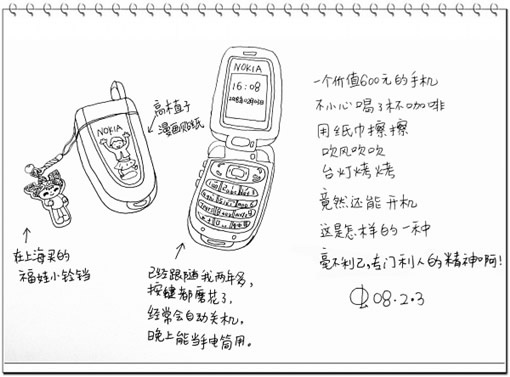 高木直子
漫画贴纸
NOKIA
NOKIA
16:08
在上海买的
福娃小铃铛
已经跟随我两年多,
按键都磨花了.
经常会自动关机,
晚上能当手电筒用。
一个价值600元的手机
不小心喝了杯咖啡
用纸巾擦擦
吹风吹吹
台灯烤烤
竟然还能开机
这是怎样的一种
毫不利己,专门利人的精神啊!
08.2.3